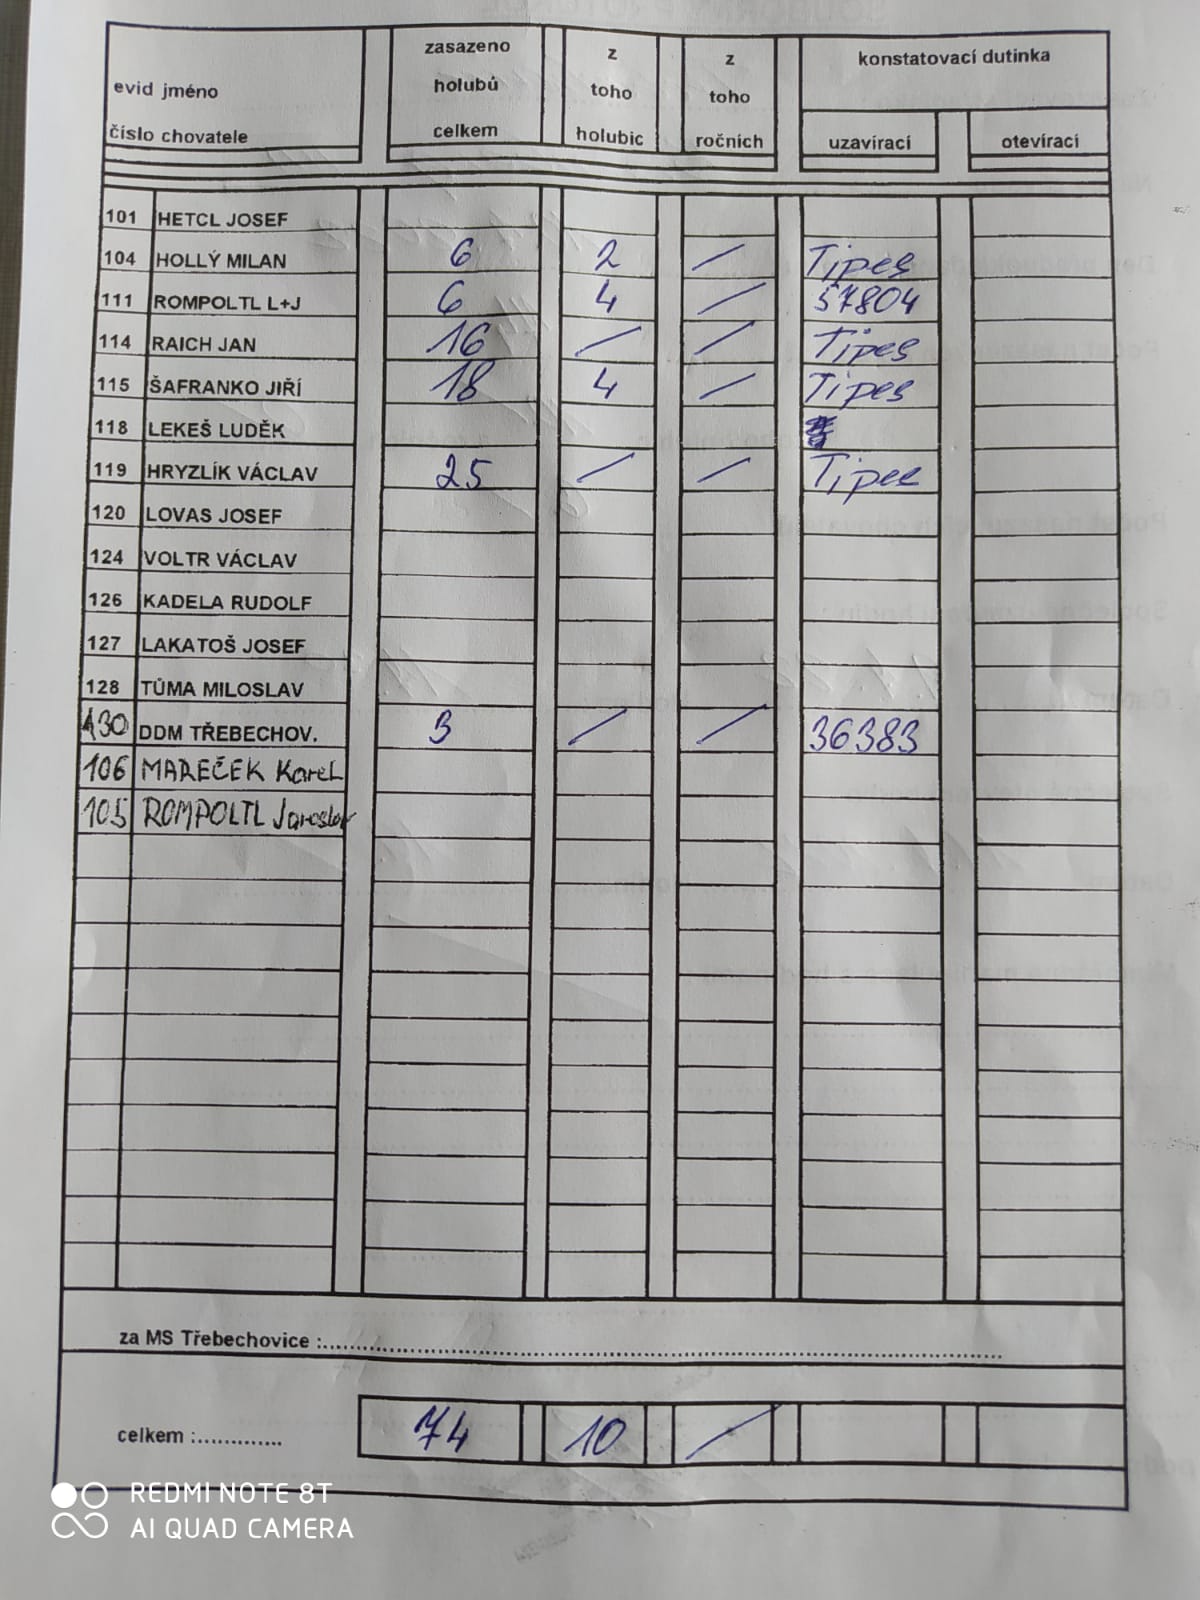 evid jméno
číslo chovatele
zasazeno
holubů
celkem
z
toho
holubic
z
toho
ročních
konstatovací dutinka
uzavírací
otevírací
101 HETCL JOSEF
104 HOLLÝ MILAN 6 2 / Tipes
111 ROMPOLTL L+J 6 4 / 57804
114 RAICH JAN 16 / / Tipes
115 ŠAFRANKO JIŘÍ 18 4 / Tipes
118 LEKEŠ LUDĚK
119 HRYZLÍK VÁCLAV 25 / / Tipes
120 LOVAS JOSEF
124 VOLTR VÁCLAV
126 KADELA RUDOLF
127 LAKATOŠ JOSEF
128 TŮMA MILOSLAV
130 DDM TŘEBECHOV. 3 / / 36383
106 MAREČEK Karel
105 ROMPOLTL Jaroslav
za MS Třebechovice :
celkem : 74 10 /
REDMI NOTE 8T
AI QUAD CAMERA